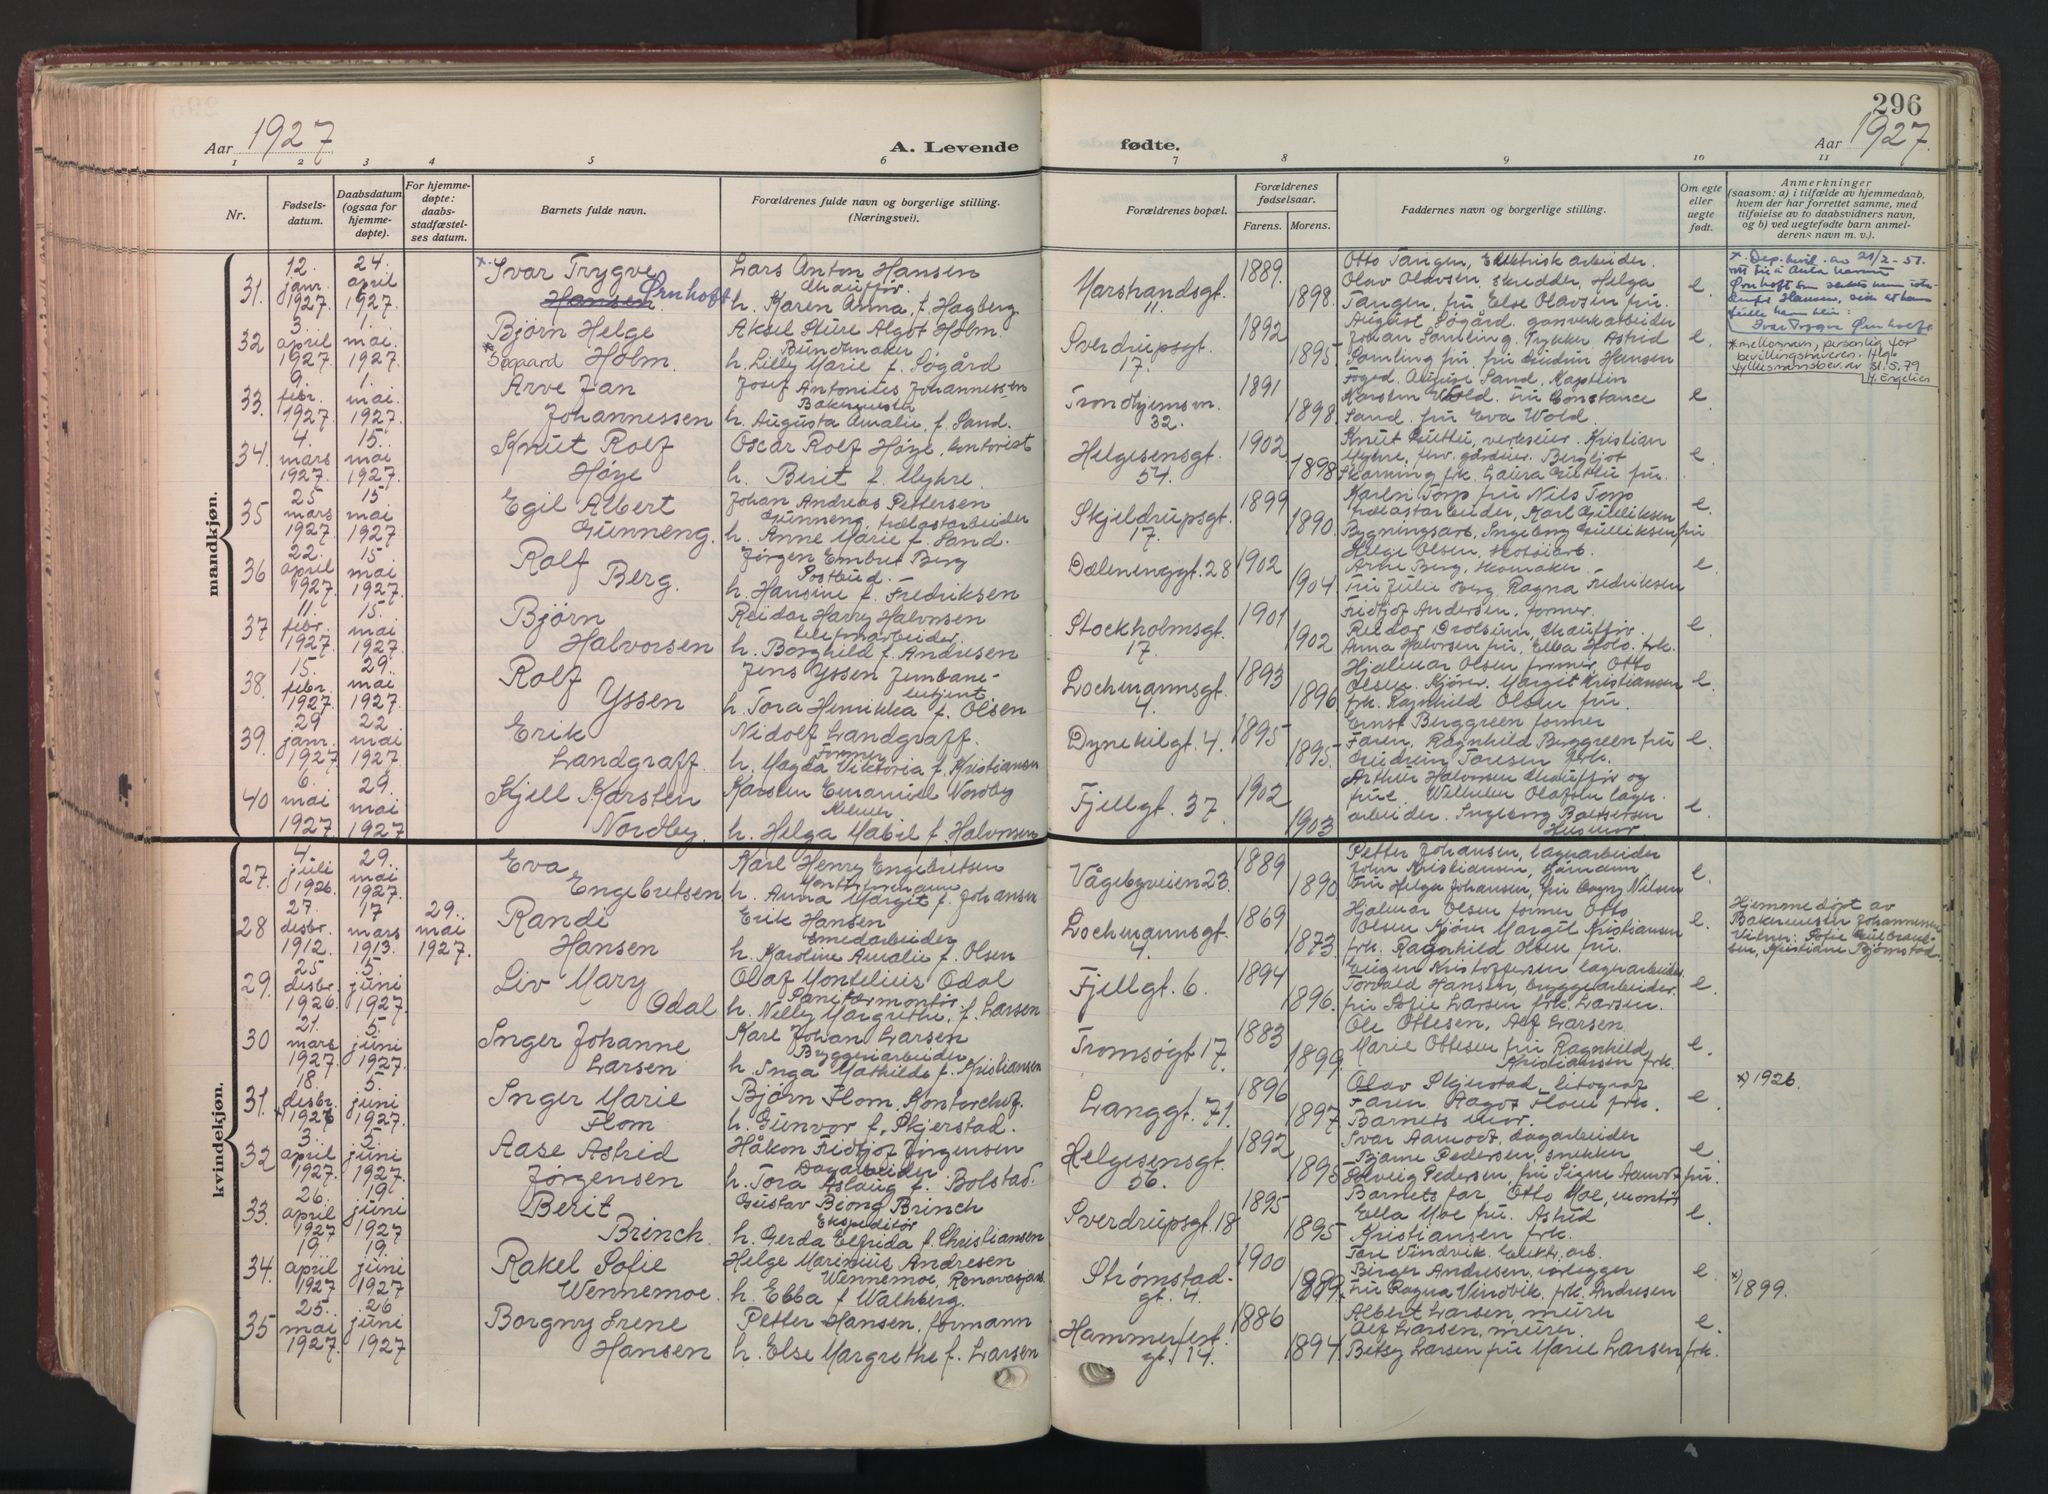 296
Aar 1927
A. Levende
fødte.
Aar 1927.
1 2 3 4 5 6 7 8 9 10 11
Nr.
Fødsels-
datum.
Daabsdatum
(ogsaa for
hjemme-
døpte).
For hjemme-
døpte:
daabs-
stadfæstel-
ses datum.
Barnets fulde navn.
Forældrenes fulde navn og borgerlige stilling.
(Næringsvei).
Forældrenes bopæl.
Forældrenes
fødselsaar.
Farens.
Morens.
Faddernes navn og borgerlige stilling.
Om egte
eller
uegte
født.
Anmerkninger
(saasom: a) i tilfælde av hjemmedaab,
hvem der har forrettet samme, med
tilføielse av to daabsvidners navn,
og b) ved uegtefødte barn anmel-
derens navn m. v.).
mandkjøn.
31.
12.
janr.
1927
24.
april
1927.
Ivar Trygve
Hansen Ørnhoft
Lars Anton Hansen
Chauffør.
h. Karen Anna, f. Hagberg
Marstrandsgt.
11.
1889.
1898.
Otto Tangen, Elektrisk arbeider.
Olav Olavsen, skredder, Helga
Tangen, fru Else Olavsen fru.
e.
* Dep. bevil. av 21/2-51.
Ørnhoft
Hansen,
Ivar Trygve Ørnhoft
32
3
april
1927
1.
mai.
1927.
Bjørn Helge
* Søgaard Holm.
Aksel Sture Algot Holm.
Buntmaker
h. Lilly Marie f. Søgård
Sverdrupsgt.
17.
1892
1895
August Søgård. gassverkarbeider
Johan Samling. Trykker. Astrid
Samling fru fru Gudrun Hansen
e.
* mellomnavn, personlig for
bevillingshaveren. Iflg.
fylkesmannsbev. av 31.5.79
H. Engelien
33.
9.
febr.
1927
1.
mai.
1927.
Arve Jan
Johannessen
Josef Antonius Johannessen
Bakermester
h. Augusta Amalie, f. Sand.
Trondhjemsvn.
32.
1891
1898
Foged. August Sand, Kaptein
Karsten Wold. fru Constance
Sand. fru Eva Wold.
e.
34.
4.
mars
1927.
15.
mai
1927.
Knut Rolf
Høye
Oscar Rolf Høye, kontorist
h. Berit f. Myhre.
Helgesensgt.
54.
1902.
1898
Kristian
e.
35
25
mars
1927
15
mai
1927.
Egil Albert
Gunneng.
Johan Andreas Pettersen
Gunneng, trælastarbeider
h. Anne Marie f. Sand.
Skjeldrupsgt.
17.
1899
1890.
Karen Torp fru Nils Torp
trælastarbeider, Karl Gulliksen
Bygningsarb. Ingeborg Gulliksen fru
e.
36
22.
april
1927.
15.
mai
1927.
Rolf
Berg.
Jørgen Embret Berg
Postbud.
h. Hansine f. Fredriksen
Dælenenggt. 28
1902
1904.
Helge Olsen, skotøiarb.
Arne Berg, skomaker.
Fru Julie Berg Ragna Fredriksen
e.
37
11.
febr.
1927.
15.
mai
1927.
Bjørn
Halvorsen
Reidar Harry Halvorsen
telefonarbeider.
h. Borghild f. Andresen
Stockholmsgt.
17.
1901
1902
Fridtjof Andersen, former.
Reidar Drolsum, chauffør.
Anna Halvorsen fru, Ebba Holo. frk.
e.
38.
15.
febr.
1927
29.
mai
1927.
Rolf
Yssen
Jens Yssen Jernbane-
betjent.
h. Tora Henrikka f. Olsen
Lochmannsgt.
4.
1893
1896
Hjalmar Olsen former. Otto
Olsen. Kjører. Margit Kristiansen
frk. Ragnhild Olsen fru.
e.
39.
29
janr.
1927
22.
mai
1927
Erik
Landgraff.
Nidolf Landgraff.
Former
h. Magda Viktoria f. Kristiansen
Dynekilgt. 4.
1895
1895.
Ernst Berggreen former
Faren. Ragnhild Berggreen fru
Gudrun Toresen frk.
e.
40
6.
mai
1927
29.
mai
1927
Kjell Karsten
Nordby.
Karsten Emanuel Nordby
Kelner
h. Helga Mabel f. Halvorsen
Fjellgt. 37.
1902
1903
Arthur Halvorsen Chauffør og
frue. Wilhelm Olafsen lager-
arbeider. Ingeborg
Husmor
e.
kvindekjøn.
27.
4.
juli
1926.
29.
mai
1927.
Eva
Engebretsen
Karl Henry Engebretsen
h. Anna Margit f. Johansen
Vågebyveien 23.
1889
1890
Petter Johansen, lagerarbeider
John Kristiansen, Sjømann
Fru Helga Johansen, fru Dagny Nilsen
e.
28
27.
desbr.
1912.
17
mars
1913.
29.
mai
1927.
Randi
Hansen
Erik Hansen
smedarbeider
h. Karoline Amalie f. Olsen
Lochmannsgt.
4.
1869
1873
Hjalmar Olsen former Otto
Olsen Kjører Margit Kristiansen
frk. Ragnhild Olsen fru.
e.
Hjemmedøpt av
Bakermester Johannesen
Vidner: Sofie Gulbrand-
sen, Kristiane Bjørnstad.
29.
25
desbr.
1926
5.
juni
1927.
Liv Mary
Odal
Olaf Montelius Odal
Sanetærmontør
h. Nelly Margrethe, f. Larsen
Fjellgt. 6.
1894
1896.
Eugen Kristoffersen lagerarbeider
Torvald Hansen, bryggearbeider.
fru Sofie Larsen frk. Larsen.
e.
30
21.
mars
1927
5.
juni
1927.
Inger Johanne
Larsen
Karl Johan Larsen
Bryggeriarbeider
h. Inga Mathilde f. Kristiansen
Tromsøgt 17.
1883
1899.
Ole Ottesen, Alf Larsen.
Marie Ottesen fru Ragnhild
Kristiansen frk.
e.
31.
18.
desbr.
x) 1926
5.
juni
1927.
Inger Marie
Flom
Bjørn Flom, Kontorchef.
h. Gunvor f. Skjerstad.
Langgt. 71.
1896
1897
Olav Skjerstad, litograf
Faren. Aagot Flom frk.
Barnets mor.
e.
x) 1926.
32
3.
april
1927.
5.
juni
1927.
Aase Astrid
Jørgensen
Håkon Fridtjof Jørgensen
Dagarbeider
h. Tora Aslaug f. Bolstad.
Helgesensgt.
56.
1892
1895
Ivar Aamodt, dagarbeider
Bjarne Pedersen, snekker
Solveig Pedersen, fru Signe Aamodt fru.
e.
33.
26.
april
1927
19.
juni
1927
Berit
Brinch.
Gustav Georg Brinch
Ekspeditør
h. Gerda Elfrida f. Christiansen
Sverdrupsgt. 18
1895
1895
Barnets far. Otto Moe, montør
Ella Moe fru. Astrid
Kristiansen frk.
e.
34.
19.
april
1927
19.
juni
1927
Rakel Sofie
Wennemoe.
Helge Marenius Andresen
Wennemoe, Renovasjons
h. Ebba f Wahlberg.
Strømstad-
gt. 4
1900
Tore Vindvik. Elektr. arb.
Birger Andresen, rørlegger
Fru Ragna Vindvik. frk. Andresen
e.
x) 1899.
35
25.
mai
1927.
26
juni
1927
Borgny Irene
Hansen
Petter Hansen, formann
h. Else Margrethe f. Larsen
Hammerfest
gt. 14.
1886
1894
Albert Larsen, murer
Alf Larsen, murer.
Betsy Larsen fru Marie Larsen frk.
e.